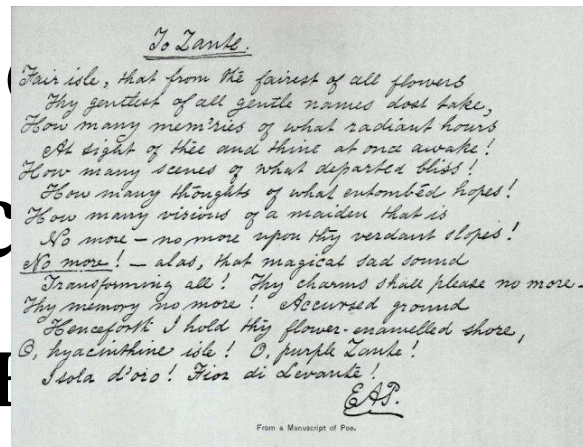 To Zante.
Fair isle, that from the fairest of all flowers
Thy gentlest of all gentle names dost take,
How many mem'ries of what radiant hours
At sight of thee and thine at once awake!
How many scenes of what departed bliss!
How many thoughts of what entombéd hopes!
How many visions of a maiden that is
No more – no more upon thy verdant slopes!
No more! – alas, that magical sad sound
Transforming all! Thy charms shall please no more –
Thy memory no more! Accursed ground
Henceforth I hold thy flower-enamelled shore,
O, hyacinthine isle! O, purple Zante!
Isola d'oro! Fior di Levante!
EAP.
From a Manuscript of Poe.